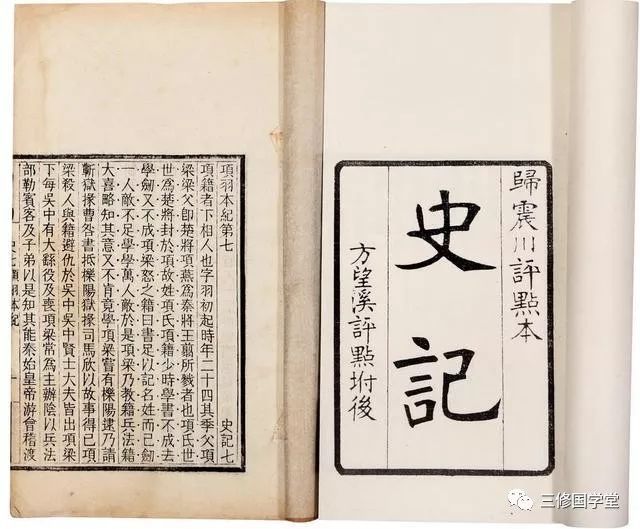 歸震川評點本
史記
方望溪評點坿後
項羽本紀第七 史記七
項籍者下相人也字羽初起時年二十四其季父項
梁梁父卽楚將項燕爲秦將王翦所戮者也項氏世
世爲楚將封於項故姓項氏項籍少時學書不成去
學劍又不成項梁怒之籍曰書足以記名姓而已劍
一人敵不足學學萬人敵於是項梁乃教籍兵法籍
大喜略知其意又不肯竟學項梁嘗有櫟陽逮乃請
蘄獄掾曹咎書抵櫟陽獄掾司馬欣以故事得已項
梁殺人與籍避仇於吳中吳中賢士大夫皆出項梁
下每吳中有大繇役及喪項梁常爲主辦陰以兵法
部勒賓客及子弟以是知其能秦始皇帝游會稽渡
三修国学堂